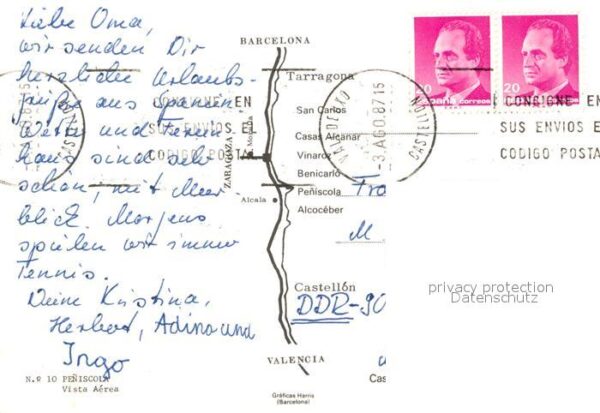 Liebe Oma,
wir senden Dir
herzliche Urlaubs-
grüße aus Spanien
Wetter und Ferien
haus sind sehr
schön, mit Meer
blick. Morgens
spielen wir immer
Tennis.
Deine Kristina,
Herbert, Adina und
Ingo
N.º 10 PEÑISCOLA
Vista Aérea
BARCELONA
Tarragona
San Carlos
Casas Alcanar
Vinaroz
Benicarló
Peñíscola
Alcocéber
Castellón
VALENCIA
ZARAGOZA
a Morella
Alcala
Gráficas Harris
(Barcelona)
CONSIGNE EN
SUS ENVIOS EL
CODIGO POSTAL
-3.AGO.87.15
CASTELLON
20
españa correos
20
españa correos
CONSIGNE EN
SUS ENVIOS E
CODIGO POSTA
M
DDR-90
Cas
privacy protection
Datenschutz